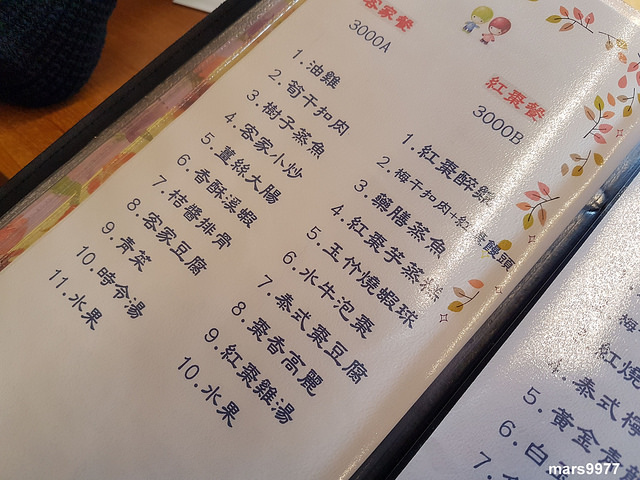 客家餐
3000A
1.油雞
2.筍干扣肉
3.樹子蒸魚
4.客家小炒
5.薑絲大腸
6.香酥溪蝦
7.桔醬排骨
8.客家豆腐
9.青菜
10.時令湯
11.水果
紅棗餐
3000B
1.紅棗醉雞
2.梅干扣肉+紅棗饅頭
3.藥膳蒸魚
4.紅棗芋蒸糕
5.玉竹燒蝦球
6.水牛泡棗
7.泰式棗豆腐
8.棗香高麗
9.紅棗雞湯
10.水果
梅
紅燒
泰式檸
5.黃金青龍
6.白
7.
mars9977